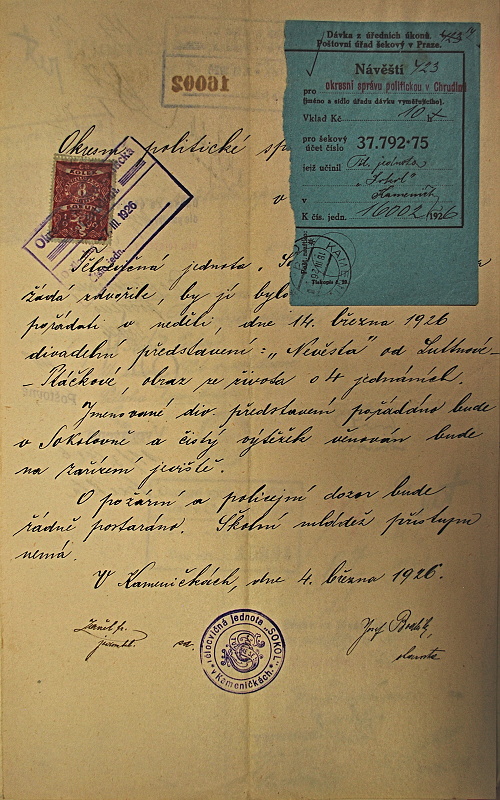 Dávka z úředních úkonů.
Poštovní úřad šekový v Praze.
Návěští 423
pro okresní správu politickou v Chrudimi
(jméno a sídlo úřadu dávku vyměřujícího).
Vklad Kč 10 h
pro šekový
účet číslo 37.792·75
jejž učinil Těl. jednota
"Sokol"
v Kameničk
K čís. jedn. 16002 1926
16002
Okresní politické sp
v
III. 1926
Tělocvičná jednota „S
žádá zdvořile, by jí bylo
pořádati v neděli, dne 14. března 1926
divadelní představení: „Nevěsta" od Luttnové-
-Ptáčkové, obraz ze života o 4 jednáních.
Jmenované div. představení pořádáno bude
v Sokolovně a čistý výtěžek věnován bude
na zařízení jeviště.
O požární a policejní dozor bude
řádně postaráno. Školní mládež přístupu
nemá.
V Kameničkách, dne 4. března 1926.
za
Tělocvičná jednota „SOKOL"
v Kameničkách.
Josef
starosta